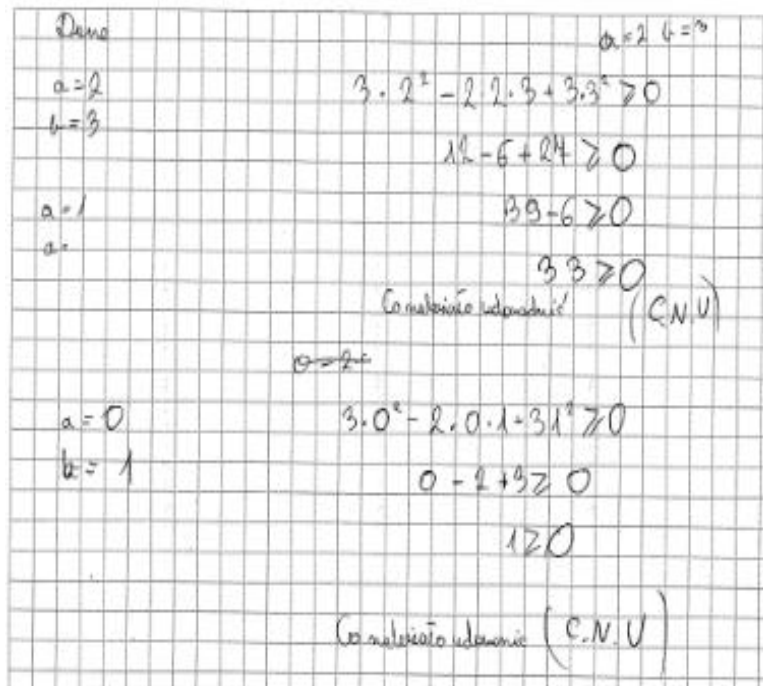 Dane
a = 2 b = 3
a = 2
b = 3
3 · 2² - 2 2 · 3 + 3 · 3² ⩾ 0
12 - 6 + 27 ⩾ 0
39 - 6 ⩾ 0
a = 1
a =
33 ⩾ 0
Co należało udowodnić (C.N.U)
a = 0
b = 1
3 · 0² - 2 · 0 · 1 + 3 1² ⩾ 0
0 - 2 + 3 ⩾ 0
1 ⩾ 0
Co należało (C.N.U)